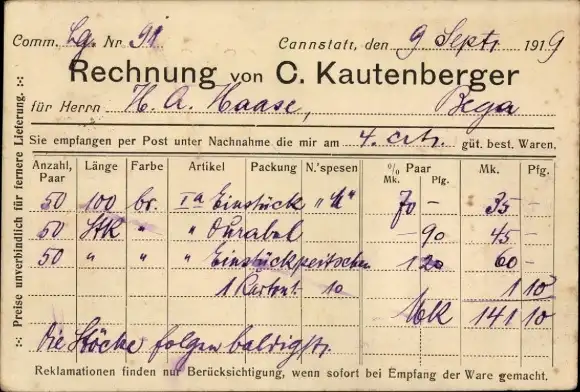 Comm. Lg. Nr 91 Cannstatt, den 9 Septr. 1919
Rechnung von C. Kautenberger
für Herrn H. A. Haase, Bega
Sie empfangen per Post unter Nachnahme die mir am 4. crt. güt. best. Waren.
Anzahl, Paar Länge Farbe Artikel Packung N.'spesen % Paar Mk. Pfg. Mk. Pfg.
50 100 br. Ia Einstück 70 - 35 -
50 Stk " " Durabel - 90 45 -
50 " " " Einstückpeitschen 1 20 60 -
1 Karton 10 1 10
Mk 141 10
Die Stöcke folgen baldigst.
Reklamationen finden nur Berücksichtigung, wenn sofort bei Empfang der Ware gemacht.
Preise unverbindlich für fernere Lieferung.